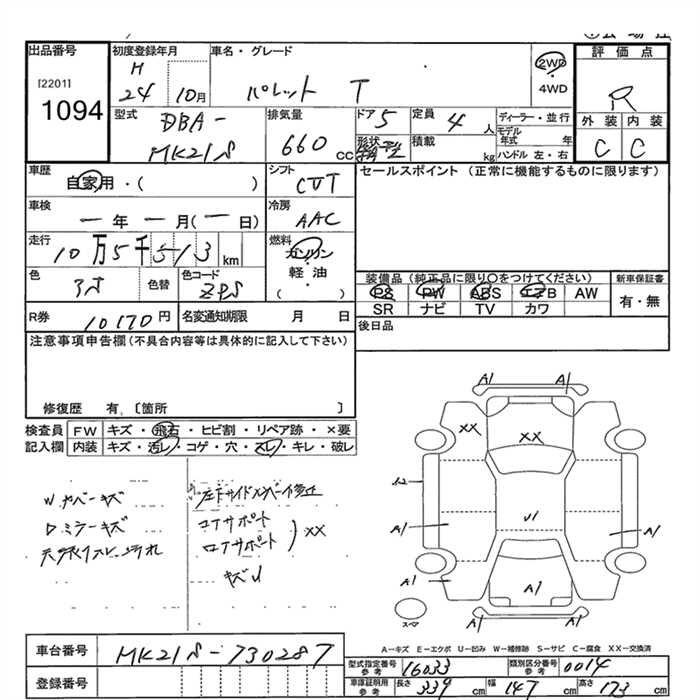 出品番号
[2201]
1094
初度登録年月
H
24 10月
車名・グレード
パレット T
2WD
4WD
評価点
R
外装 内装
C C
型式
DBA-
MK21S
排気量
660 cc
ドア 5
形状
定員 4 人
積載 kg
ディーラー・並行
モデル年式 年
ハンドル 左・右
車歴
自家用・( )
シフト
CVT
セールスポイント (正常に機能するものに限ります)
車検
一年一月(一日)
冷房
AAC
走行
10万5千513km
燃料
ガソリン
軽油
( )
色
色替
色コード
ZPS
装備品(純正品に限り○をつけてください)
PS PW ABS エアB AW
SR ナビ TV カワ
新車保証書
有・無
R券 10170円
名変通知期限 月 日
後日品
注意事項申告欄(不具合内容等は具体的に記入して下さい)
修復歴 有、〔箇所 〕
検査員記入欄
FW キズ・飛石・ヒビ割・リペア跡・×要
内装 キズ・汚レ・コゲ・穴・スレ・キレ・破レ
Wカバーキズ
Dミラーキズ
コアサポート
コアサポート
) XX
キズU
A1 A1
XX
XX
A1
U1
A1
A1
A1
A1 A1
スペア
A-キズ E-エクボ U-凹み W-補修跡 S-サビ C-腐食 XX-交換済
車台番号
MK21S-730287
登録番号
型式指定番号参考 16033
類別区分番号参考 0014
車庫証明用参考 長さ 339 cm 幅 147 cm 高さ 173 cm